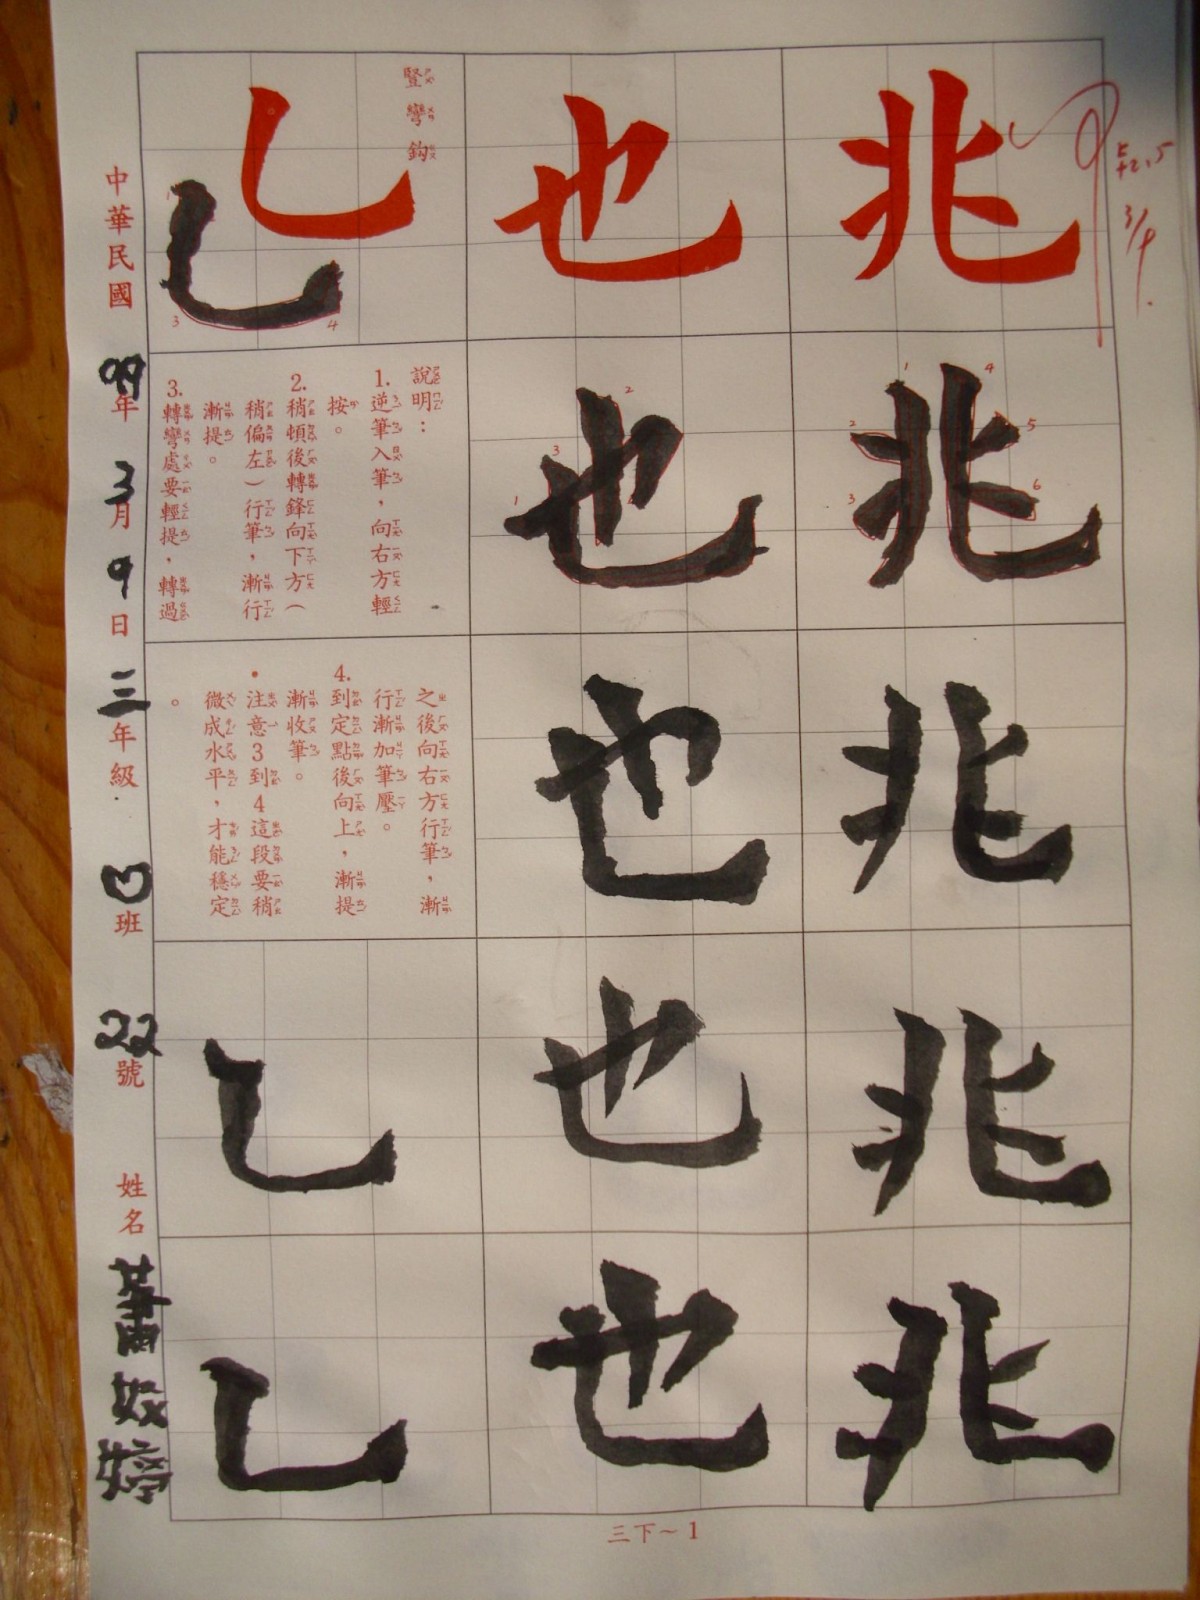 兆
兆
兆
兆
兆
也
也
也
也
也
豎彎鈎
說明：
1.逆筆入筆，向右方輕
按。
2.稍頓後轉鋒向下方（
稍偏左）行筆，漸行
漸提。
3.轉彎處要輕提，轉過
之後向右方行筆，漸
行漸加筆壓。
4.到定點後向上，漸提
漸收筆。
•注意3到4這段要稍
微成水平，才能穩定
。
中華民國99年3月9日三年級四班22號 姓名蕭
三下～1
3/9